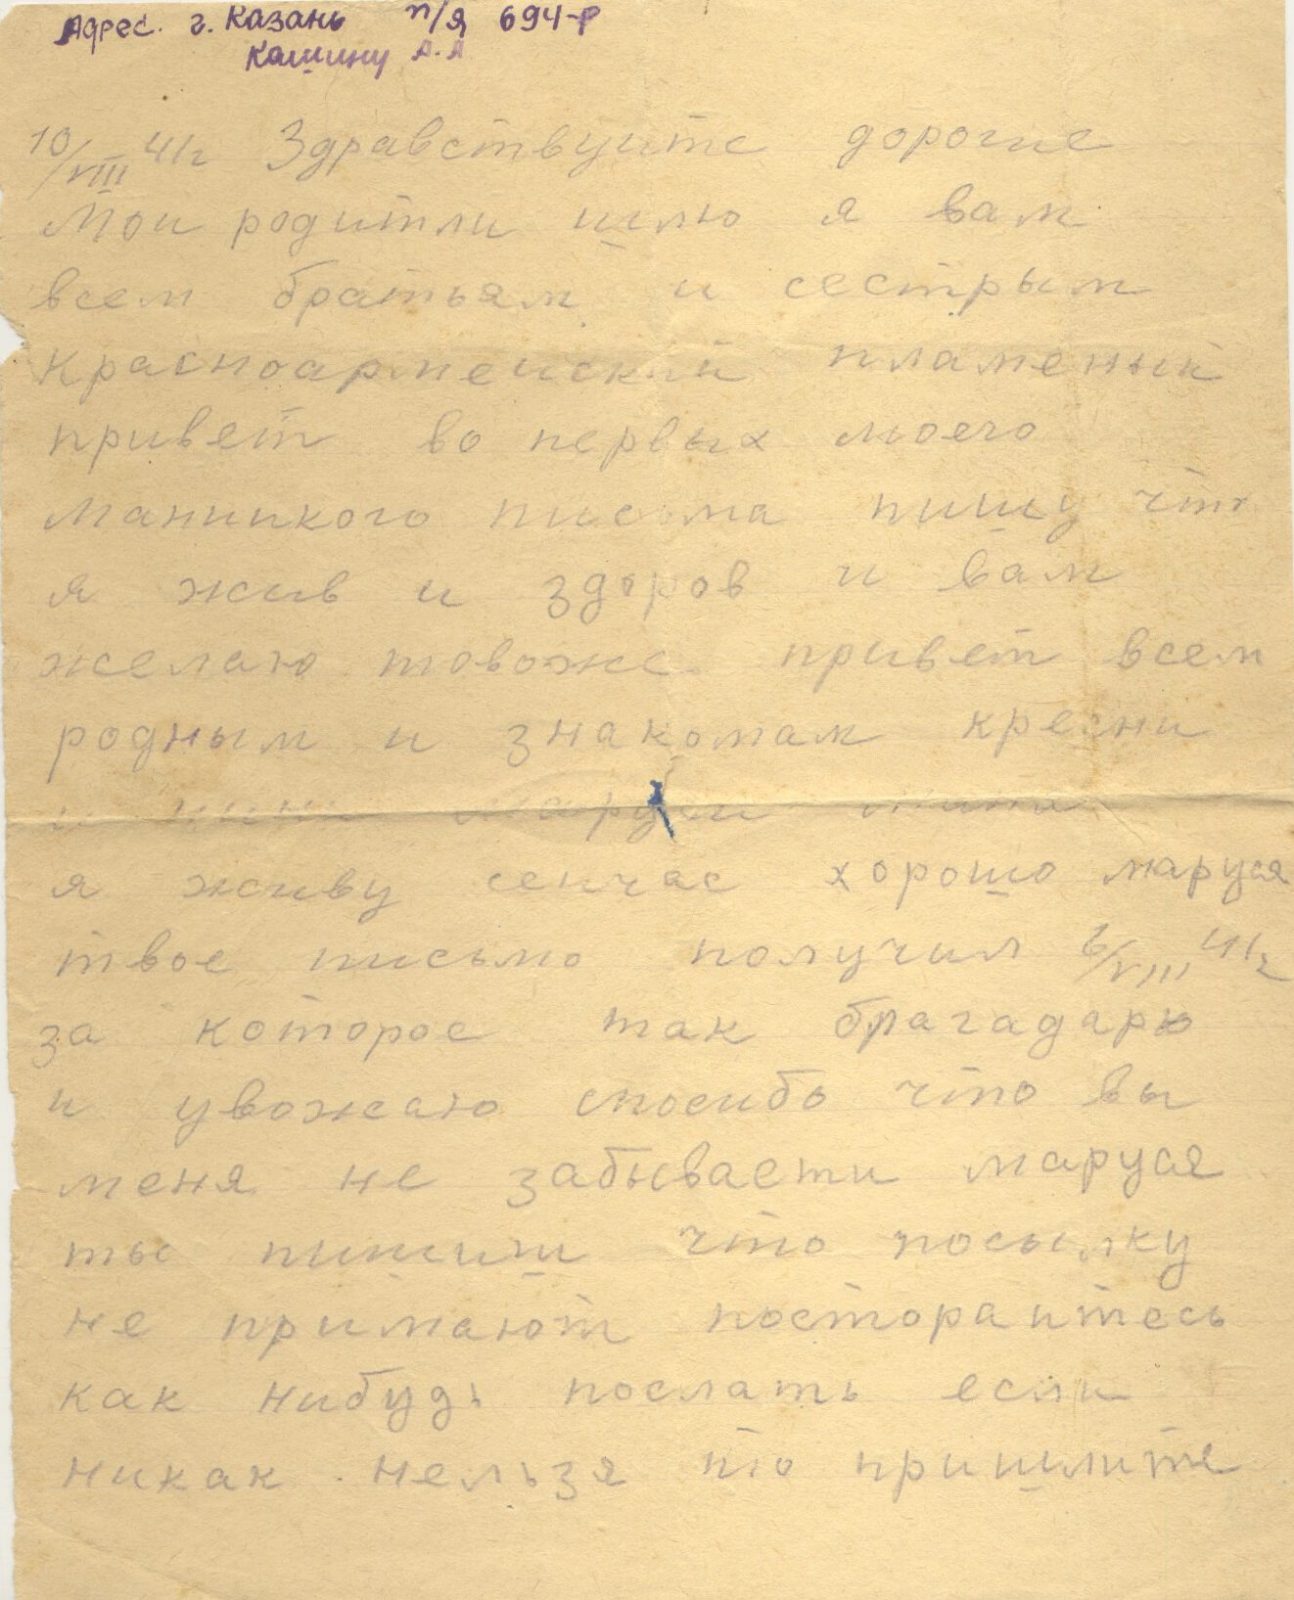 Адрес. г. Казань п/я 694-р
Кашину А.А
10/VIII 41г Здравствуйте дорогие
Мои родитли шлю я вам
всем братьям и сестрым
Красноармейский пламеный
привет во первых моего
маницкого письма пишу что
я жив и здоров и вам
желаю товоже привет всем
родным и знакомам кресни
и маруси
я живу сейчас хорошо маруся
твое письмо получил 6/VIII 41г
за которое так благадарю
и увожаю спосибо что вы
меня не забываети маруся
ты пишиш что посылку
не примают посторайтесь
как нибудь послать если
никак нельзя то пришлите